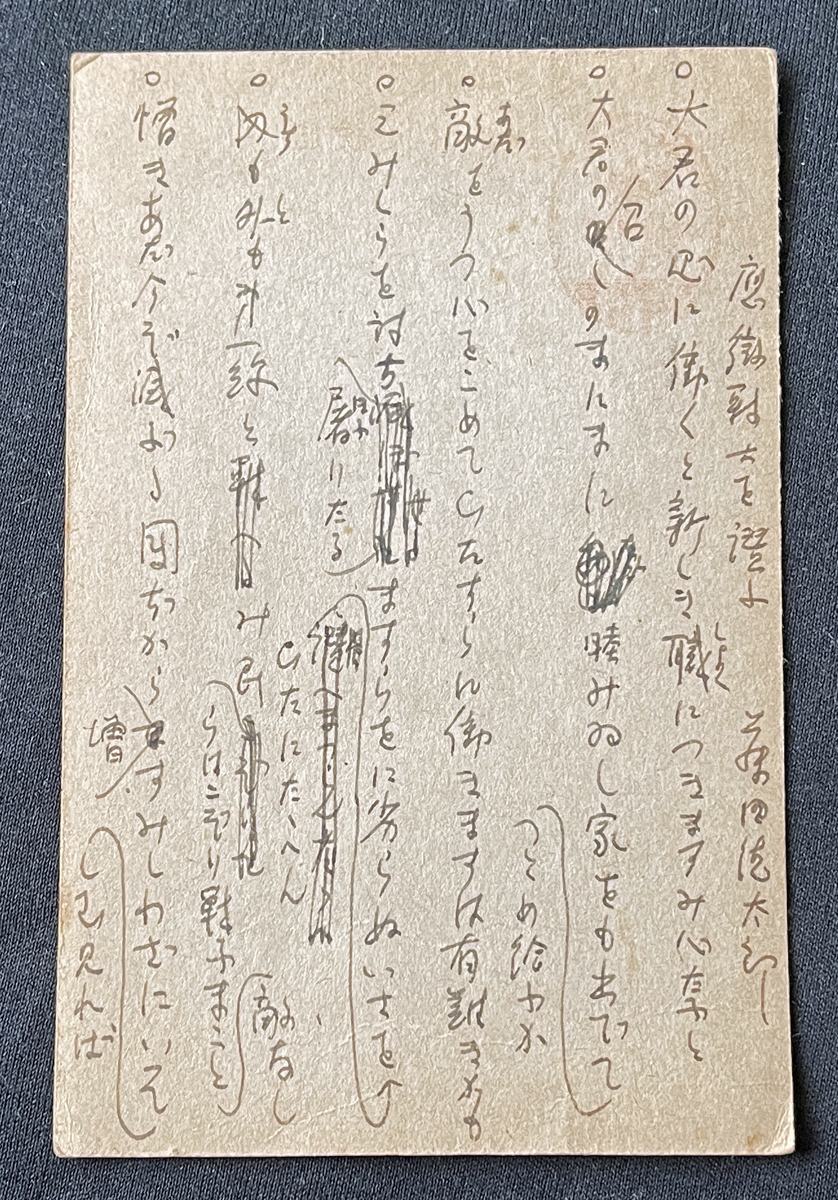 應徴戰士を讃ふ 藤田徳太郎
○大君の為に働くと新しき職につきますみ心尊と
○大君の召しのまにまに睦みゐし家をも出でて
つとめ給ふか
○敵をうつ心をこめてひたすらに働きますは有難きかも
○えみしらを討ち
屠りたるますらをに劣らぬいさをひたにたたへん
○内も外もみ一線とみ民
らはこぞり戰ふまこと敵なし
○憎きあだ今ぞ滅ぶる国ぢから増すみしわざにいそ
しむ見れば